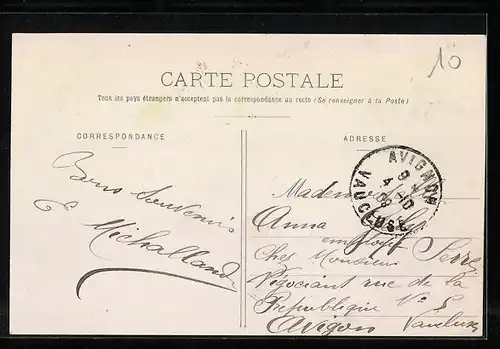 10
CARTE POSTALE
Tous les pays étrangers n'acceptent pas la correspondance au recto (Se renseigner à la Poste)
CORRESPONDANCE
ADRESSE
Bons Souvenirs
Michalland
AVIGNON
VAUCLUSE
Anna
Serre
Chez Monsieur
Négociant rue de la
République No 5
Avigon Vaucluse